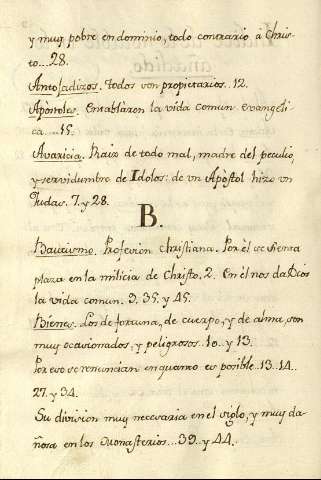 y muy pobre en dominio, todo contrario á Chris-
to...28.
Antojadizos. Todos son propietarios. 12.
Apòstoles. Entablàron la vida comun evangeli-
ca....15.
Avaricia. Raiz de todo mal, madre del peculio,
y servidumbre de Idolos: de un Apòstol hizo un
Judas. 7. y 28.
B.
Bautismo. Profesion Christiana. Por él se sienta
plaza en la milicia de Christo. 2. En èl nos da Dios
la vida comun. 9. 35. y 45.
Bienes. Los de fortuna, de cuerpo, y de alma, son
muy ocasionados, y peligrosos. 10. y 13.
Por eso se renuncian en quanto es posible. 13. 14.
27. y 34.
Su division muy necesaria en el siglo, y muy da-
ñosa en los Monasterios...39. y 44.